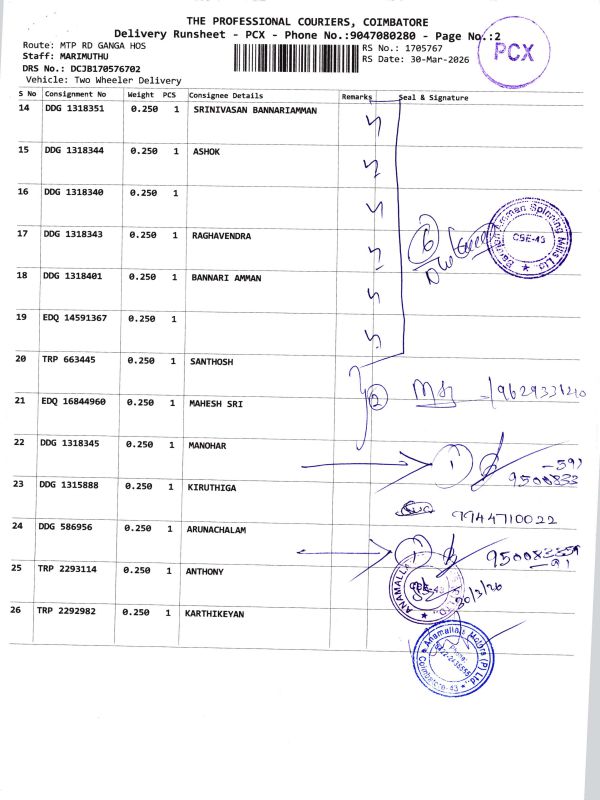 THE PROFESSIONAL COURIERS, COIMBATORE
Delivery Runsheet - PCX - Phone No.:9047080280 - Page No.:2
PCX
Route: MTP RD GANGA HOS
RS No.: 1705767
Staff: MARIMUTHU
RS Date: 30-Mar-2026
DRS No.: DCJB170576702
Vehicle: Two Wheeler Delivery
S No Consignment No Weight PCS Consignee Details Remarks Seal & Signature
14 DDG 1318351 0.250 1 SRINIVASAN BANNARIAMMAN
15 DDG 1318344 0.250 1 ASHOK
16 DDG 1318340 0.250 1
17 DDG 1318343 0.250 1 RAGHAVENDRA
6
Bannari Amman Spinning Mills Ltd.
CBE-43
18 DDG 1318401 0.250 1 BANNARI AMMAN
19 EDQ 14591367 0.250 1
20 TRP 663445 0.250 1 SANTHOSH
2
21 EDQ 16844960 0.250 1 MAHESH SRI
22 DDG 1318345 0.250 1 MANOHAR
1
23 DDG 1315888 0.250 1 KIRUTHIGA
9944710022
24 DDG 586956 0.250 1 ARUNACHALAM
1
25 TRP 2293114 0.250 1 ANTHONY
CBE-43
30/3/26
26 TRP 2292982 0.250 1 KARTHIKEYAN
Anamallais Motors (P) Ltd.
Phone:
Coimbatore-43